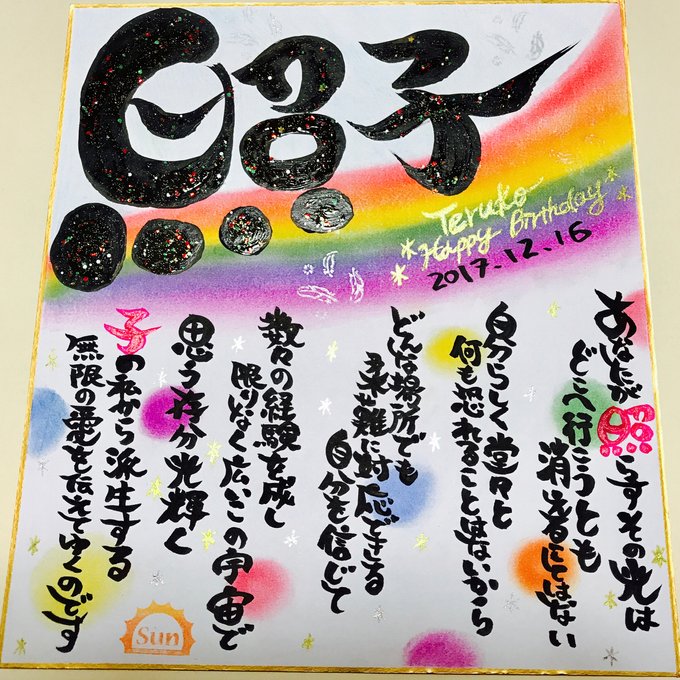 照子
Teruko
Happy Birthday
2017.12.16
あなたが照らすその光は
どこへ行こうとも
消いることはない
自分らしく堂々と
何も恐れることはないから
どんな場所でも
柔軟に対応できる
自分を信じて
数々の経験を成し
限りなく広いこの宇宙で
思う存分光輝く
子の私から派生する
無限の愛を伝えてゆくのです
Sun